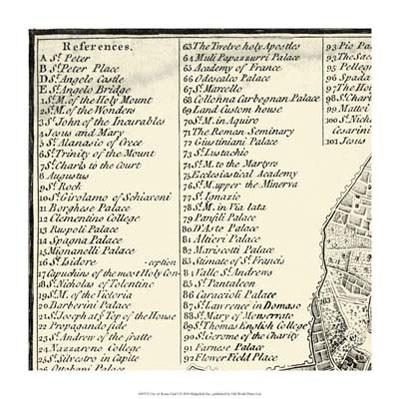 References.
A St. Peter
B St. Peter Place
D St. Angelo Castle
E St. Angelo Bridge
1 St. M. of the Holy Mount
2 St. M. of the Wonders
3 St. John of the Incurables
4 Jesus and Mary
5 St. Atanasio of Greece
6 St. Trinity of the Mount
7 St. Charls to the Court
8 Augustus
9 St. Rock
10 St. Girolamo of Schiavoni
11 Borghese Palace
12 Clementino College
13 Ruspoli Palace
14 Spagna Palace
15 Mignanelli Palace
16 St. Isidore -ception
17 Capuchins of the most Holy Con-
18 St. Nicholas of Tolentino
19 St. M. of the Victoria
20 Barberini Palace
21 St. Joseph at ye Top of the House
22 Propaganda fide
23 St. Andrew of the fratte
24 Nazzareno College
25 St. Silvestro in Capite
26 Ottoboni Palace
63 The Twelve holy Apostles
64 Muli Papazzurri Palace
65 Academy of France
66 Odescalco Palace
67 St. Marcello
68 Collonna Carbognan Palace
69 Land Custom house
70 St. M. in Aquiro
71 The Roman Seminary
72 Giustiniani Palace
73 St. Eustachio
74 St. M. to the Martyrs
75 Ecclesiastical Academy
76 St. M. upper the Minerva
77 St. Ignazio
78 St. M. in Via lata
79 Panfili Palace
80 D'Aste Palace
81 Altieri Palace
82 Mariscotti Palace
83 Stimate of St. Francis
84 Valle St. Andrews
85 St. Pantaleon
86 Caraccioli Palace
87 St. Lawrence in Damaso
88 St. Mary of Monserrato
89 St. Thomas English College
90 St. Gerome of the Charity
91 Farnesi Palace
92 Flower Field Place
93 Pio Pa
94 The Sac
95 Pellegr
96 Spada
97 The M
98 St. Charl
99 Mattei
100 St. Nich
Cesarini
101 Jesus